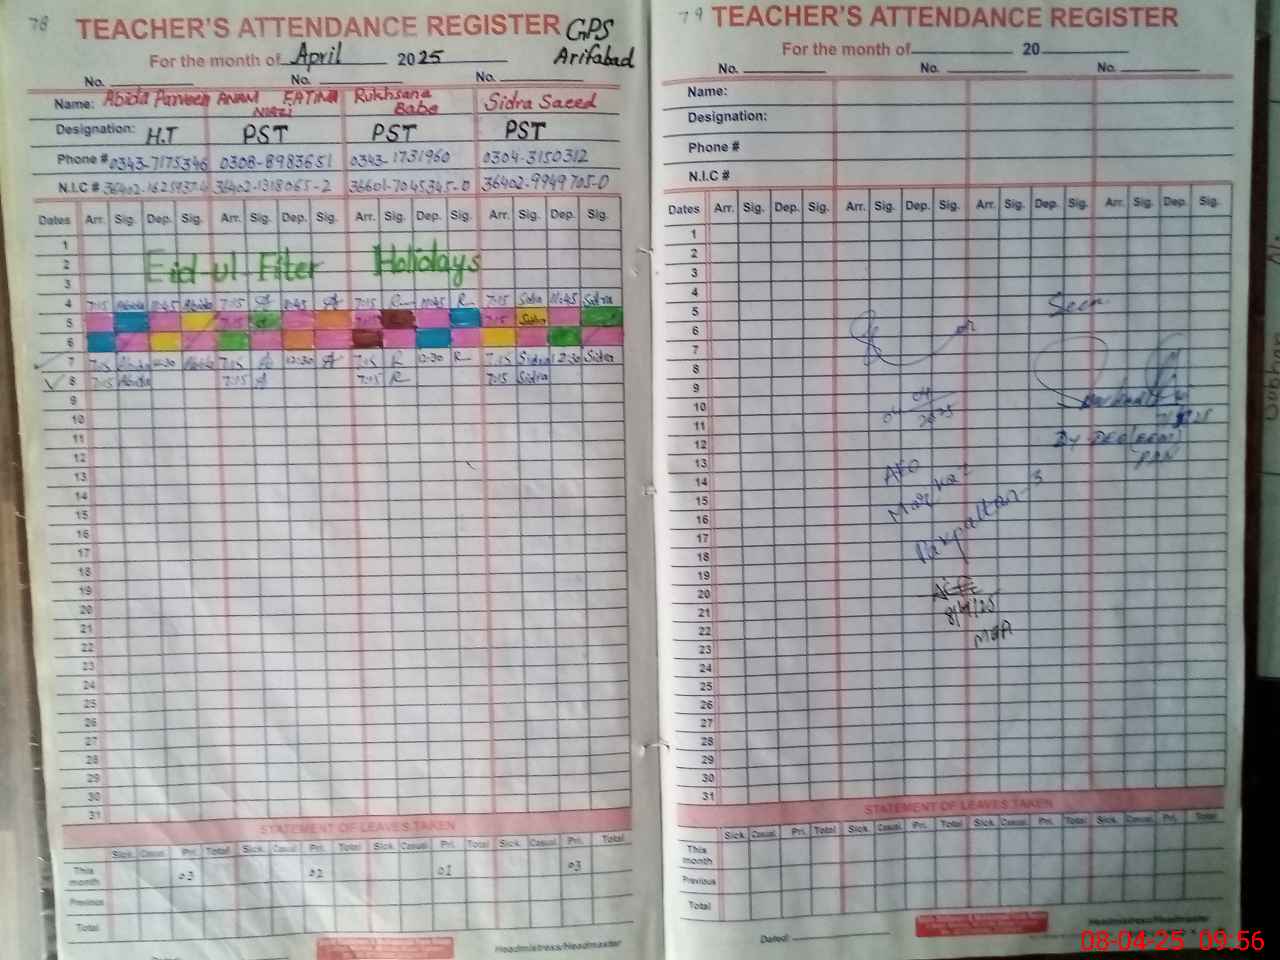 78
TEACHER'S ATTENDANCE REGISTER GPS
For the month of April 2025 Arifabad
No. No. No.
Name: Abida Parveen ANAM FATIMA NIAZI Rukhsana Baba Sidra Saeed
Designation: H.T PST PST PST
Phone # 0343-7175346 0308-8983651 0343-1731960 0304-3150312
N.I.C # 36402-1318065-2 36601-7045345-0 36402-9949705-0
Dates Arr. Sig. Dep. Sig. Arr. Sig. Dep. Sig. Arr. Sig. Dep. Sig. Arr. Sig. Dep. Sig.
1
2 Eid-ul Fiter Holidays
3
4 7:15 Abida 11:45 Abida 7:15 A 11:45 A 7:15 R 11:45 R 7:15 Sidra 11:45 Sidra
5 7:15 7:15 7:15 Sidra
6
7 7:15 Abida 12:30 Abida 7:15 A 12:30 A 7:15 R 12:30 R 7:15 Sidra 12:30 Sidra
8 7:15 Abida 7:15 A 7:15 R 7:15 Sidra
9
10
11
12
13
14
15
16
17
18
19
20
21
22
23
24
25
26
27
28
29
30
31
STATEMENT OF LEAVES TAKEN
Sick. Casual. Pri. Total Sick. Casual. Pri. Total Sick. Casual. Pri. Total Sick. Casual. Pri. Total
This month 03 02 01 03
Previous
Total
Dated: Headmistress/Headmaster
79
TEACHER'S ATTENDANCE REGISTER
For the month of 20
No. No. No.
Name:
Designation:
Phone #
N.I.C #
Dates Arr. Sig. Dep. Sig. Arr. Sig. Dep. Sig. Arr. Sig. Dep. Sig. Arr. Sig. Dep. Sig.
1
2
3
4
5 Seen
6
7
8
9
10 04 04 2025
11
12 Dy DEO
13
14 AEO
15 Markaz
16
17 Pakpattan-3
18
19
20
21 8/4/25
22 MEA
23
24
25
26
27
28
29
30
31
STATEMENT OF LEAVES TAKEN
Sick. Casual. Pri. Total Sick. Casual. Pri. Total Sick. Casual. Pri. Total Sick. Casual. Pri. Total
This month
Previous
Total
Dated: Headmistress/Headmaster
08-04-25 09:56